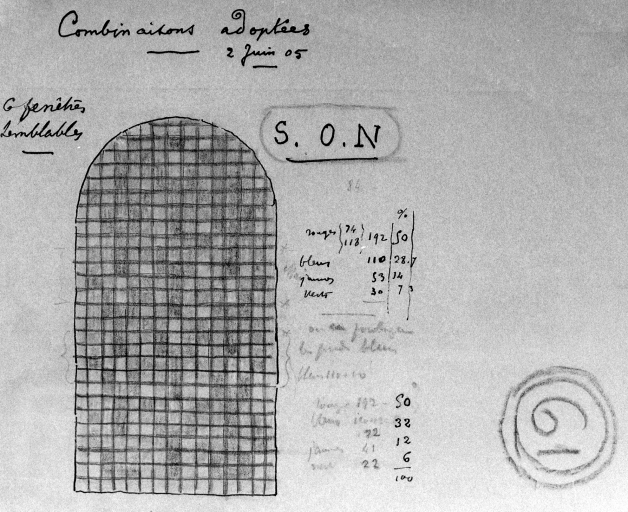 Combinaisons adoptées
2 Juin 05
6 fenêtres
semblables
S. O. N
%
rouges 74 192 50
118
bleus 110 28.7
jaunes 53 14
verts 30 7 3
les fonds bleus
rouge 192 50
bleus 32
22 12
jaunes 41 6
vert 22 100